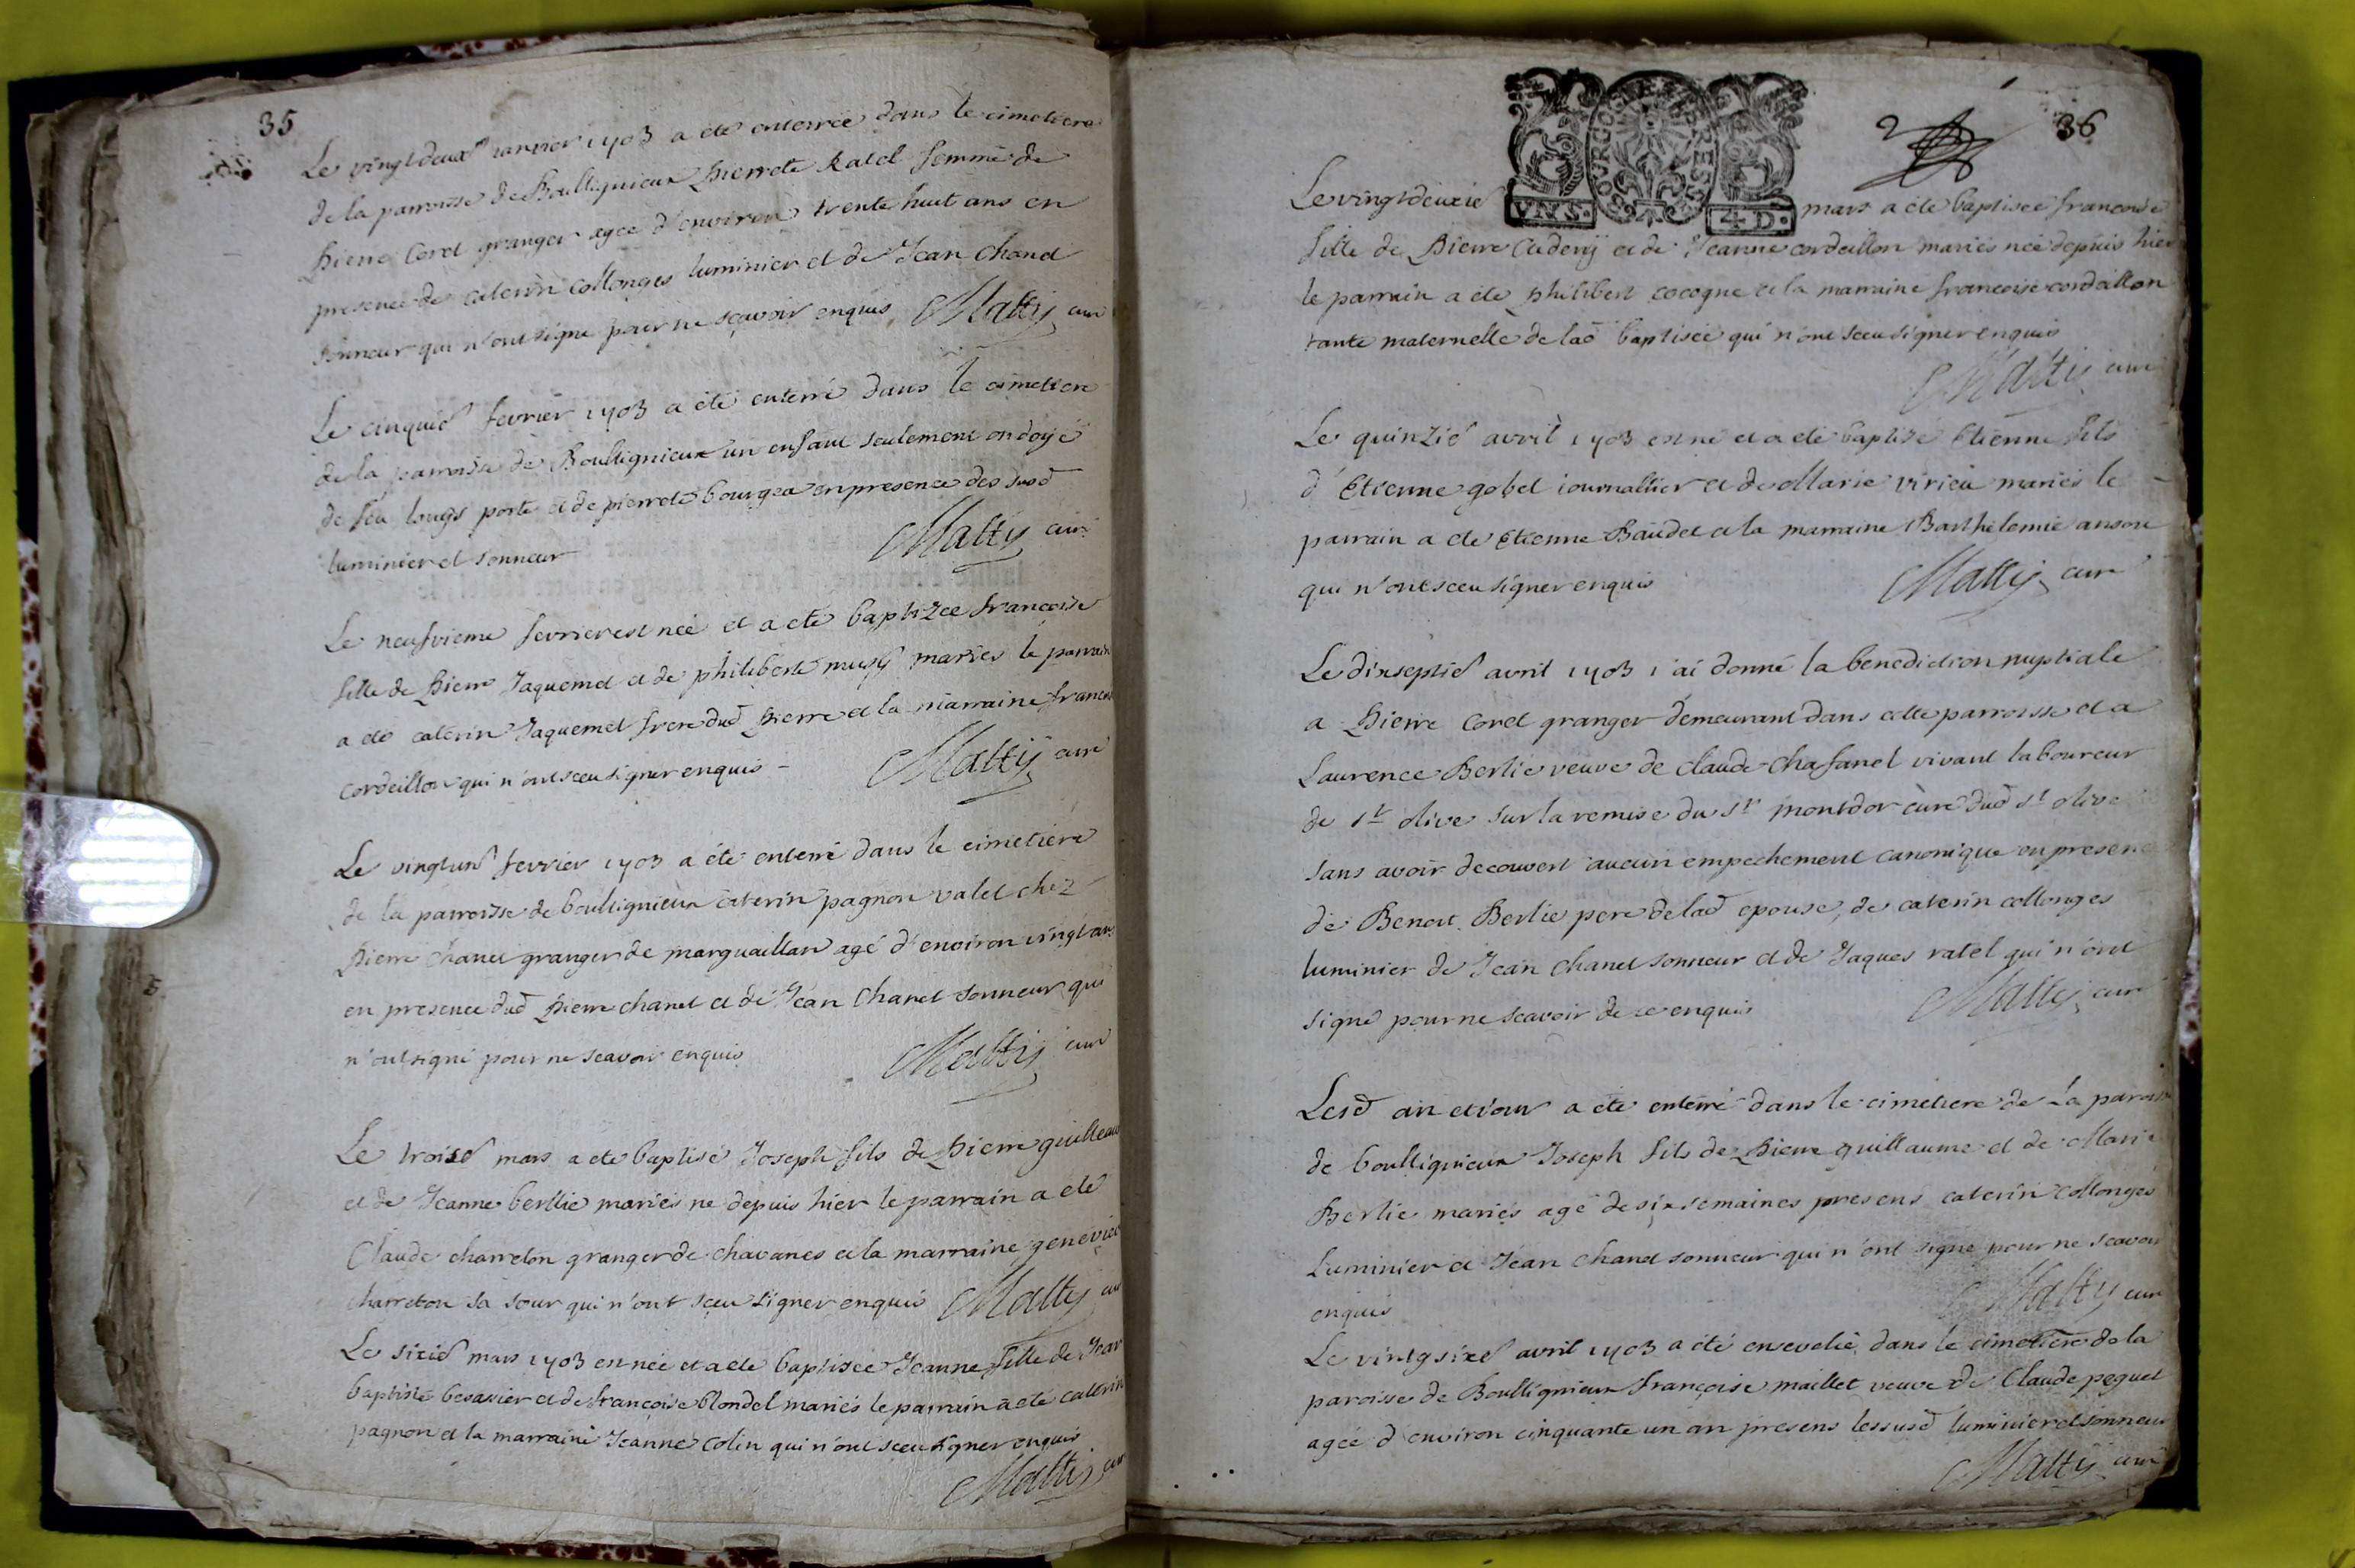 35
Le vingt deux janvier 1703 a été enterrée dans le cimetiere
de la parroisse de Boullignieux Pierrete Ratel femme de
Pierre Coret granger agee d'environ trente huit ans en
presence de caterin Collonges luminier et de Jean Chanel
sonneur qui n'ont signé pour ne sçavoir enquis Matty curé
Le cinquie fevrier 1703 a été enterré dans le cimetiere
de la parroisse de Boullignieux un enfant seulement ondoyé
de feu porte et de pierrete bourgea en presence des susd
luminier et sonneur Matty curé
Le neufvieme fevrier est neé et a eté baptizee francoise
fille de Pierre Jaquemet et de philiberte musy mariés le parrain
a eté caterin Jaquemet frere dud Pierre et la marraine
cordeillon qui n'ont sceu signer enquis - Matty curé
Le vingtun fevrier 1703 a été enterré dans le cimetiere
de la parroisse de boullignieux caterin pagnon valet chez
Pierre Chanel granger de marguaillan agé d'environ vingt ans
en presence dud Pierre chanel et de Jean Chanel sonneur qui
n'ont signé pour ne scavoir enquis Matty curé
Le troise mars a eté baptisé Joseph fils de Pierre
et de Jeanne berllie mariés ne depuis hier le parrain a eté
Claude charreton granger de chavanes et la marraine
charreton sa sour qui n'ont sceu signer enquis Matty curé
Le sixie mars 1703 est née et a eté baptisée Jeanne fille de Jean
baptiste besasier et de francoise blondel mariés le parrain a eté catterin
pagnon et la marraine Jeanne Colin qui n'ont sceu signer enquis
Matty curé
36
BOURGOGNE BRESSE
VN S. 4 D.
Le vingtdeuxie mars a eté baptisée francoise
fille de Pierre Cadeny et de Jeanne cordeillon mariés née depuis hier
le parrain a eté philibert cocogne et la marraine francoise cordeillon
tante maternelle de lad baptisée qui n'ont sceu signer enquis
Matty curé
Le quinzie avril 1703 est né et a eté baptisé Etienne fils
d'Etienne gobel iournallier et de Marie virieu mariés le
parrain a eté Etienne Baudet et la marraine Barthelemie anson
qui n'ont sceu signer enquis Matty curé
Le dixseptie avril 1703 i'ai donné la benediction nuptiale
a Pierre Coret granger demeurant dans cette parroisse et a
Laurence Berlie veuve de claude Chafanel vivant laboureur
de st olive sur la remise du sr montdor curé dud st olive
sans avoir decouvert aucun empechement canonique en presence
de Benoit Berlie pere de lad epouse, de caterin collonges
luminier de Jean Chanel sonneur et de Jaques ratel qui n'ont
signé pour ne scavoir de ce enquis Matty curé
Lesd an et iour a été enterré dans le cimetiere de La paroisse
de boullignieux Joseph fils de Pierre guillaume et de Marie
Berlie mariés agé de six semaines presens caterin Collonges
Luminier et Jean Chanel sonneur qui n'ont signé pour ne scavoir
enquis Matty curé
Le vintgsixe avril 1703 a été ensevelie dans le cimetiere de la
paroisse de Boullignieux françoise maillet veuve de Claude peguet
agée d'environ cinquante un an presens les susd luminier et sonneur
Matty curé